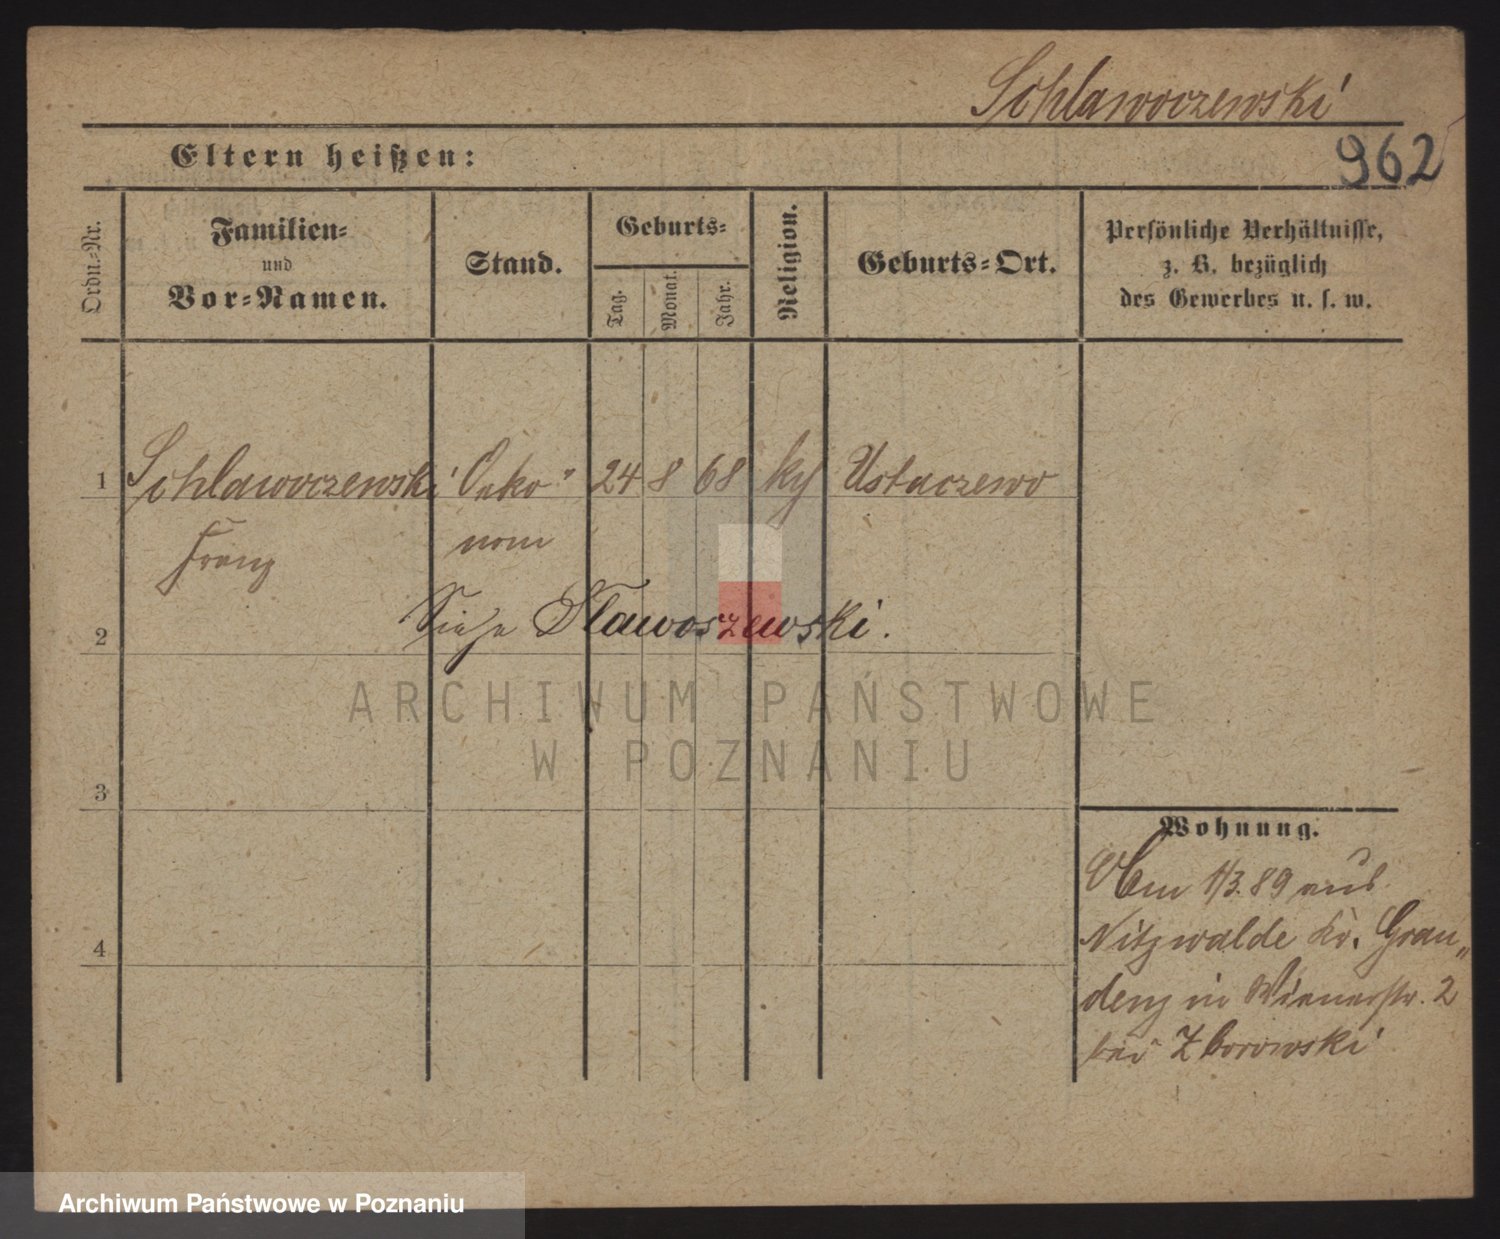 Schlawoczewski
962
Eltern heißen:
Ordn.-Nr.
Familien-
und
Vor-Namen.
Stand.
Geburts-
Tag.
Monat.
Jahr.
Religion.
Geburts-Ort.
Persönliche Verhältnisse,
z. B. bezüglich
des Gewerbes u. s. w.
1 Schlawoczewski Oeko- 24 8 68 Ustaczewo
Franz nom
2 Siehe Slawoszewski.
ARCHIWUM PAŃSTWOWE
W POZNANIU
3
Wohnung.
4
1/3.89 aus
Nitzwalde Kr. Grau-
denz in Wienerstr. 2
bei Zborowski
Archiwum Państwowe w Poznaniu